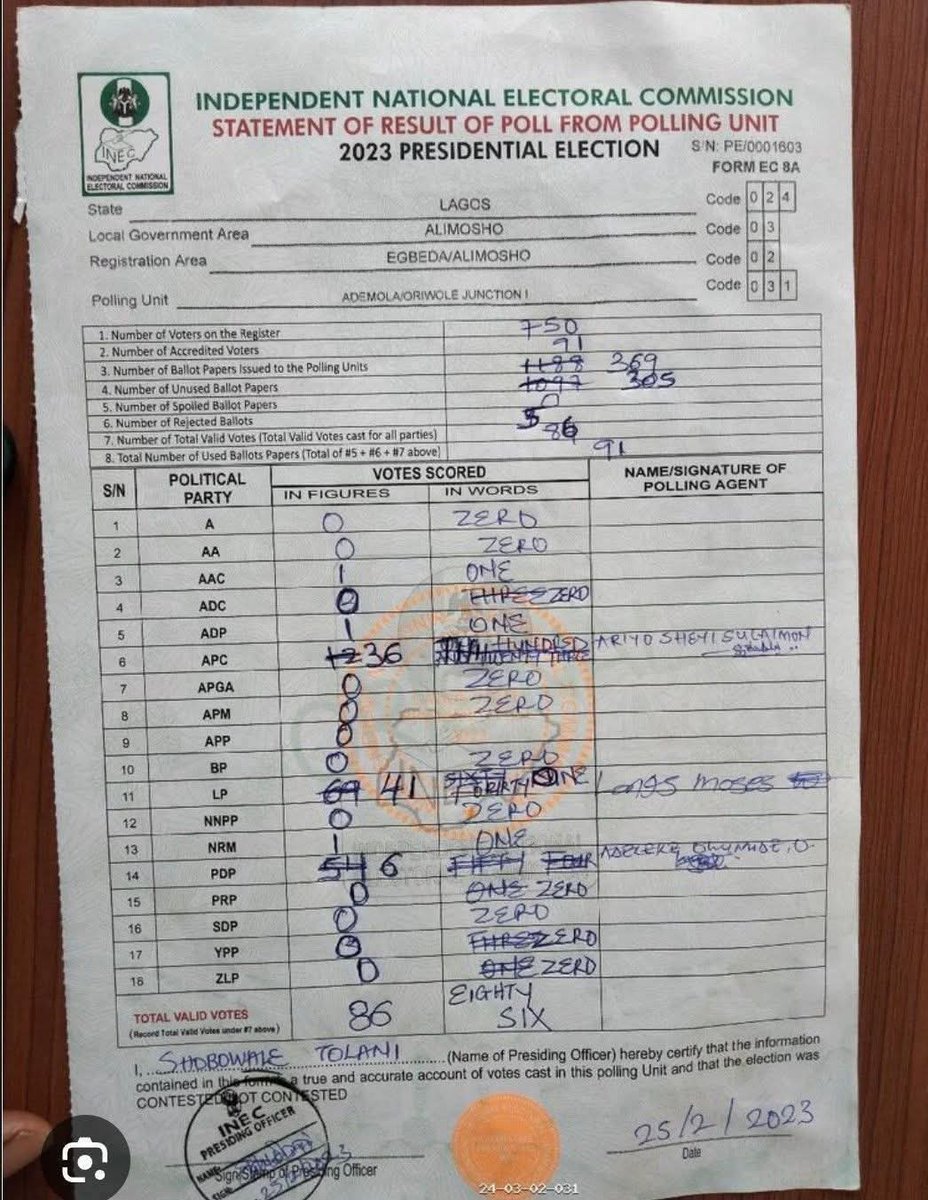 INDEPENDENT NATIONAL ELECTORAL COMMISSION
STATEMENT OF RESULT OF POLL FROM POLLING UNIT
2023 PRESIDENTIAL ELECTION S/N: PE/0001603
FORM EC 8A
INEC
INDEPENDENT NATIONAL
ELECTORAL COMMISSION
State LAGOS Code 0 2 4
Local Government Area ALIMOSHO Code 0 3
Registration Area EGBEDA/ALIMOSHO Code 0 2
Polling Unit ADEMOLA/ORIWOLE JUNCTION I Code 0 3 1
1. Number of Voters on the Register 750
2. Number of Accredited Voters 91
3. Number of Ballot Papers Issued to the Polling Units 1188 369
4. Number of Unused Ballot Papers 1097 305
5. Number of Spoiled Ballot Papers 0
6. Number of Rejected Ballots 5
7. Number of Total Valid Votes (Total Valid Votes cast for all parties) 86
8. Total Number of Used Ballots Papers (Total of #5 + #6 + #7 above) 91
S/N POLITICAL PARTY VOTES SCORED NAME/SIGNATURE OF POLLING AGENT
IN FIGURES IN WORDS
1 A 0 ZERO
2 AA 0 ZERO
3 AAC 1 ONE
4 ADC 0 THREE ZERO
5 ADP 1 ONE
6 APC 12 36 HUNDRED TWENTY THREE ARIYO SHEYI SULAIMON
7 APGA 0 ZERO
8 APM 0 ZERO
9 APP 0
10 BP 0 ZERO
11 LP 69 41 ONE Moses
12 NNPP 0 ZERO
13 NRM 1 ONE
14 PDP 54 6 FIFTY FOUR ADELEKE
15 PRP 0 ONE ZERO
16 SDP 0 ZERO
17 YPP 0 THREE ZERO
18 ZLP 0 ONE ZERO
TOTAL VALID VOTES 86 EIGHTY SIX
(Record Total Valid Votes under #7 above)
I, SHOBOWALE TOLANI (Name of Presiding Officer) hereby certify that the information
contained in this form is a true and accurate account of votes cast in this polling Unit and that the election was
CONTESTED/NOT CONTESTED
INEC
PRESIDING OFFICER
NAME:
SIGN:
25/2/2023
Sign/Stamp of Presiding Officer Date
24-03-02-031